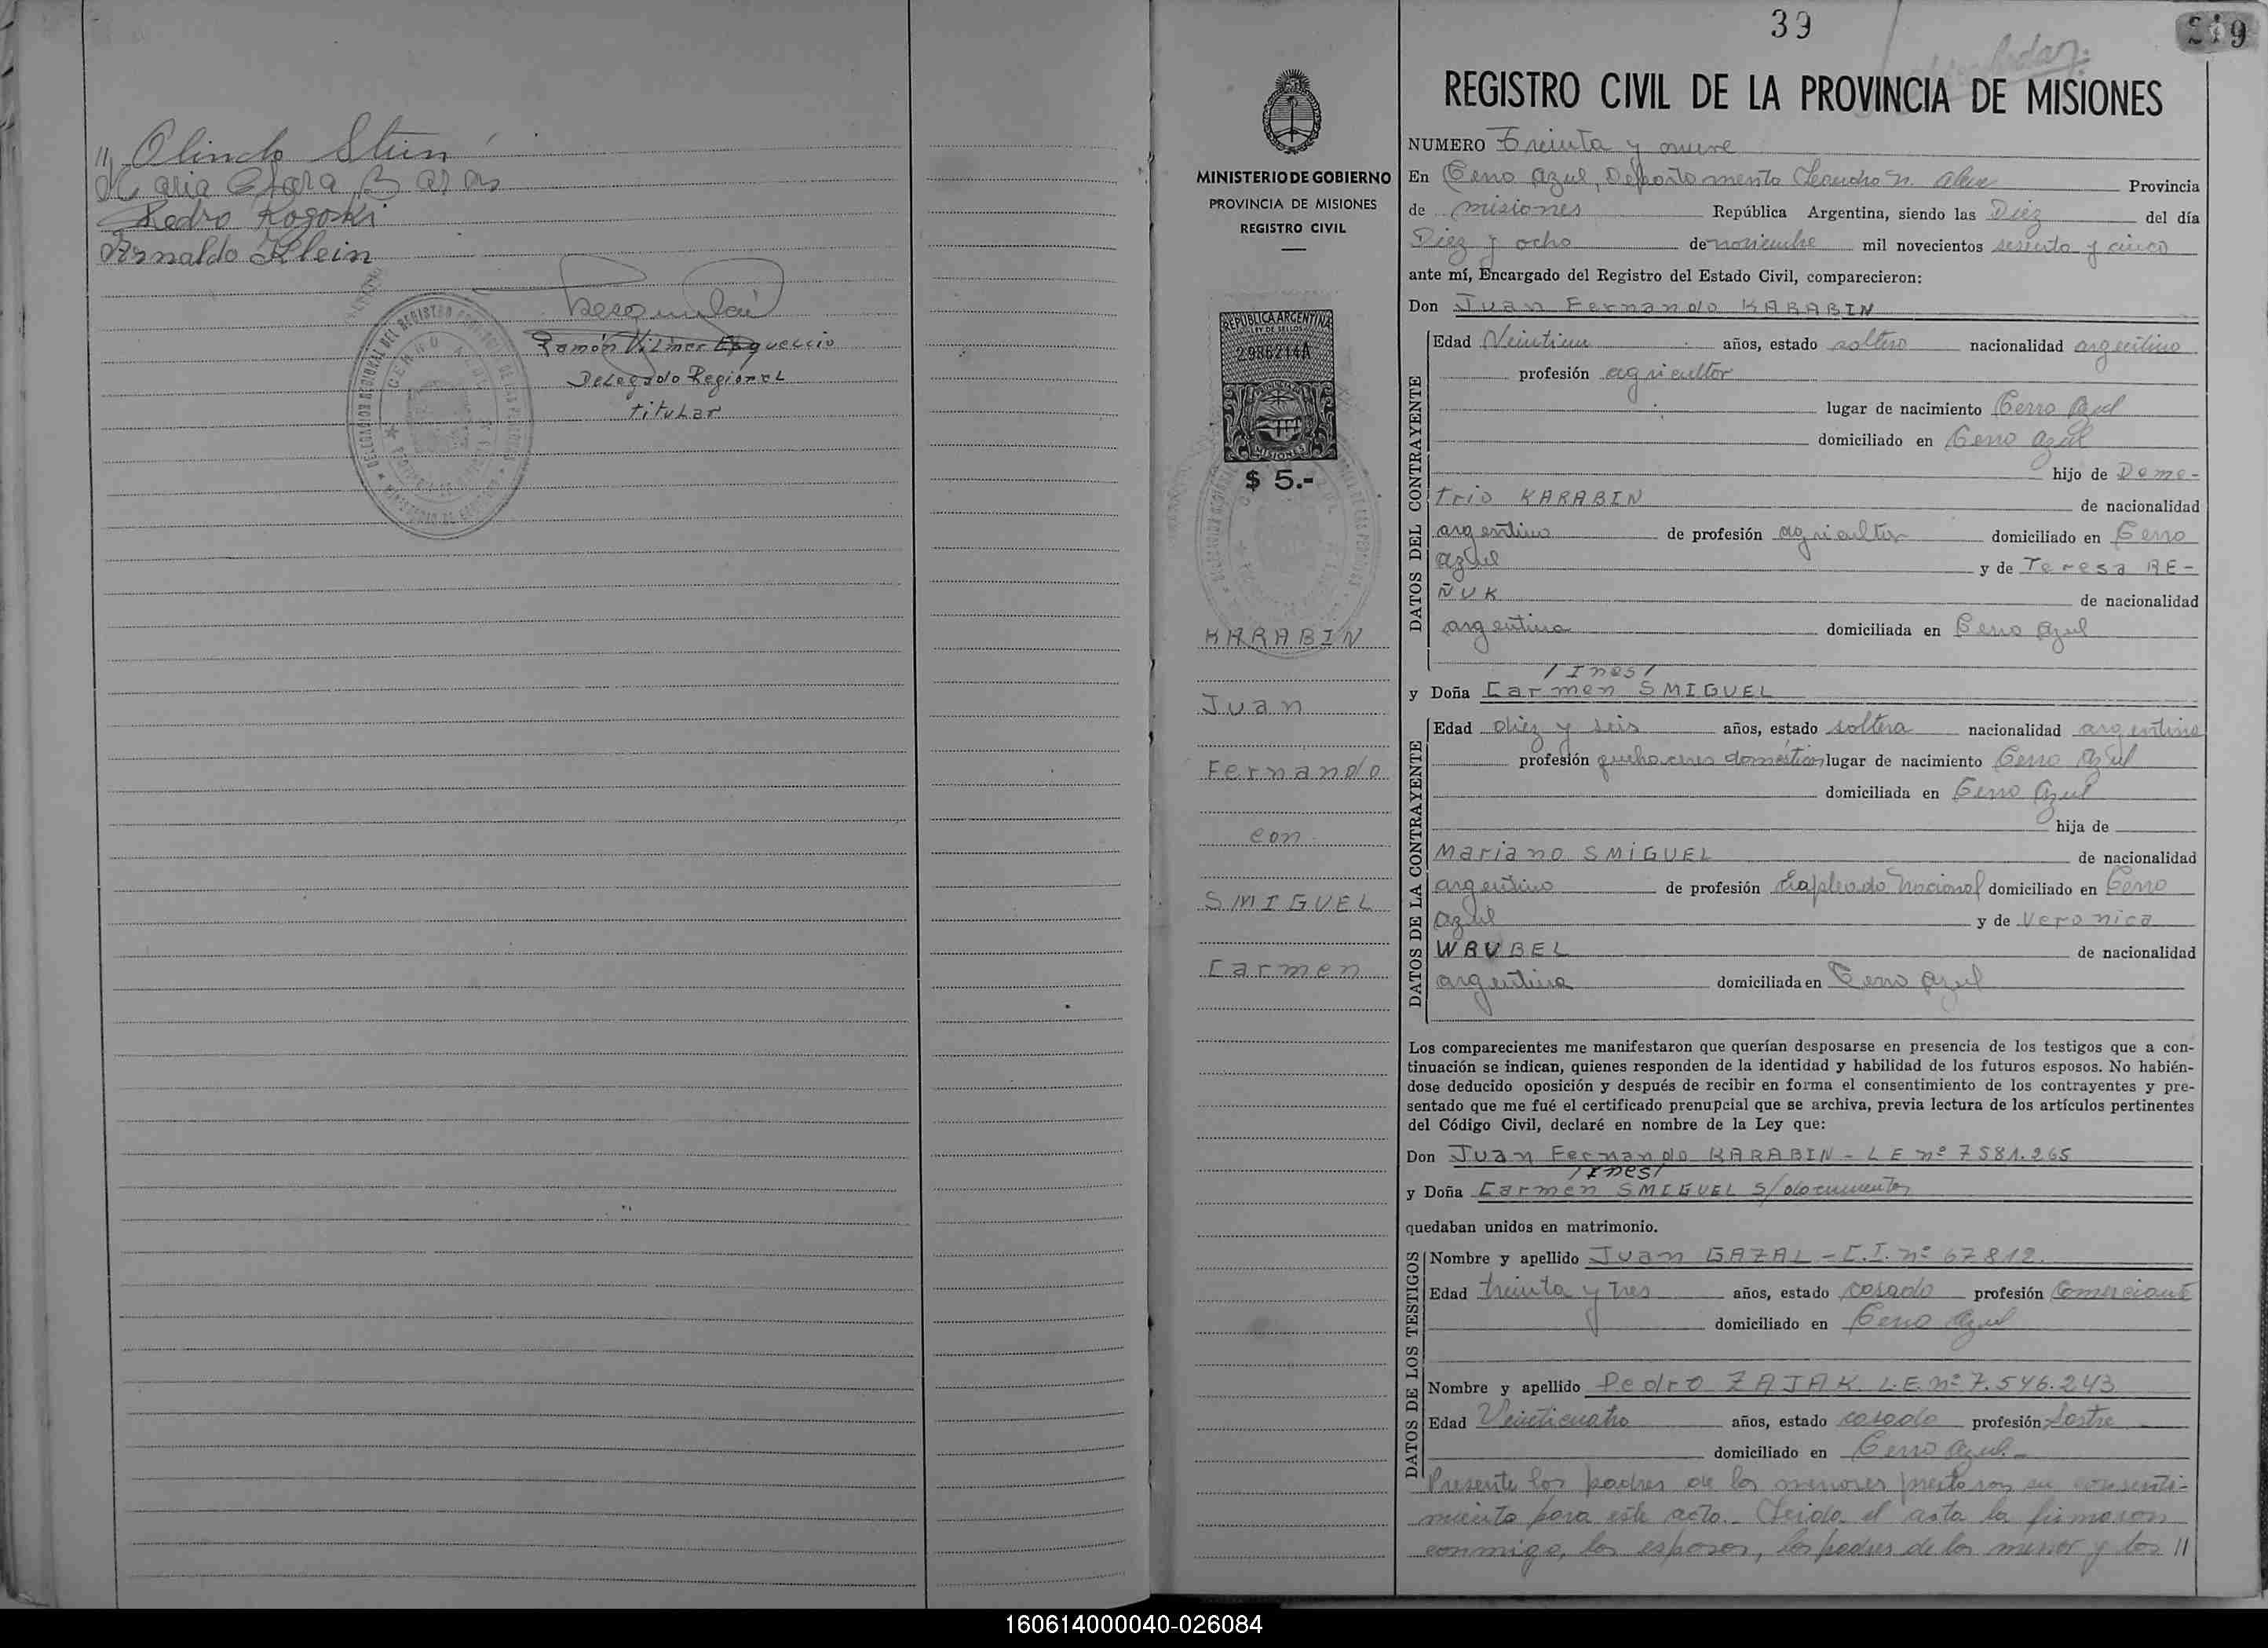 11 Olindo Stein
Maria Clara Baron
Pedro Rogoski
Arnaldo Klein
Ramón Vilmar
Delegado Regional
titular
39
219
REGISTRO CIVIL DE LA PROVINCIA DE MISIONES
MINISTERIO DE GOBIERNO
PROVINCIA DE MISIONES
REGISTRO CIVIL
REPUBLICA ARGENTINA
LEY DE SELLOS
2986214A
MISIONES
$ 5.-
KARABIN
Juan
Fernando
con
SMIGUEL
Carmen
NUMERO Treinta y nueve
En Cerro Azul, Departamento Leandro N. Alem Provincia
de misiones República Argentina, siendo las Diez del día
Diez y ocho de noviembre mil novecientos sesenta y cinco
ante mí, Encargado del Registro del Estado Civil, comparecieron:
Don Juan Fernando KARABIN
DATOS DEL CONTRAYENTE
Edad Veintiun años, estado soltero nacionalidad argentino
profesión agricultor
lugar de nacimiento Cerro Azul
domiciliado en Cerro Azul
hijo de Deme-
trio KARABIN de nacionalidad
argentino de profesión agricultor domiciliado en Cerro
Azul y de Teresa RE-
ÑUK de nacionalidad
argentina domiciliada en Cerro Azul
/Ines/
y Doña Carmen SMIGUEL
DATOS DE LA CONTRAYENTE
Edad diez y seis años, estado soltera nacionalidad argentina
profesión quehaceres domésticos lugar de nacimiento Cerro Azul
domiciliada en Cerro Azul
hija de
Mariano SMIGUEL de nacionalidad
argentino de profesión Empleado Nacional domiciliado en Cerro
Azul y de Veronica
WRUBEL de nacionalidad
argentina domiciliada en Cerro Azul
Los comparecientes me manifestaron que querían desposarse en presencia de los testigos que a con-
tinuación se indican, quienes responden de la identidad y habilidad de los futuros esposos. No habién-
dose deducido oposición y después de recibir en forma el consentimiento de los contrayentes y pre-
sentado que me fué el certificado prenupcial que se archiva, previa lectura de los artículos pertinentes
del Código Civil, declaré en nombre de la Ley que:
Don Juan Fernando KARABIN - L E nº 7581.265
/Ines/
y Doña Carmen SMIGUEL s/documentos
quedaban unidos en matrimonio.
DATOS DE LOS TESTIGOS
Nombre y apellido Juan GAZAL - C.I. nº 67812
Edad treinta y tres años, estado casado profesión Comerciante
domiciliado en Cerro Azul
Nombre y apellido Pedro ZAJAK L.E. nº 7.546.243
Edad Veinticuatro años, estado casado profesión Sastre
domiciliado en Cerro Azul.-
Presente los padres de los menores prestaron su consenti-
miento para este acto.- Leida el acta la firmaron
conmigo, los esposos, los padres de los menor y los 11
160614000040-026084